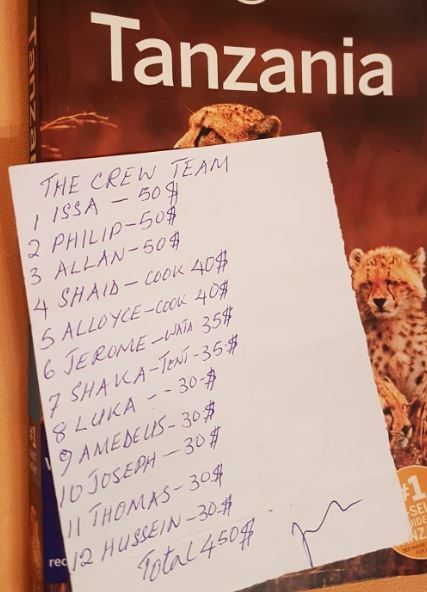 Tanzania
THE CREW TEAM
1 ISSA – 50$
2 PHILIP – 50$
3 ALLAN – 50$
4 SHAID – COOK 40$
5 ALLOYCE – COOK 40$
6 JEROME – WATA 35$
7 SHAKA – TENT – 35$
8 LUKA – – 30$
9 AMEDEUS – 30$
10 JOSEPH – 30$
11 THOMAS – 30$
12 HUSSEIN – 30$
Total 450$
#1